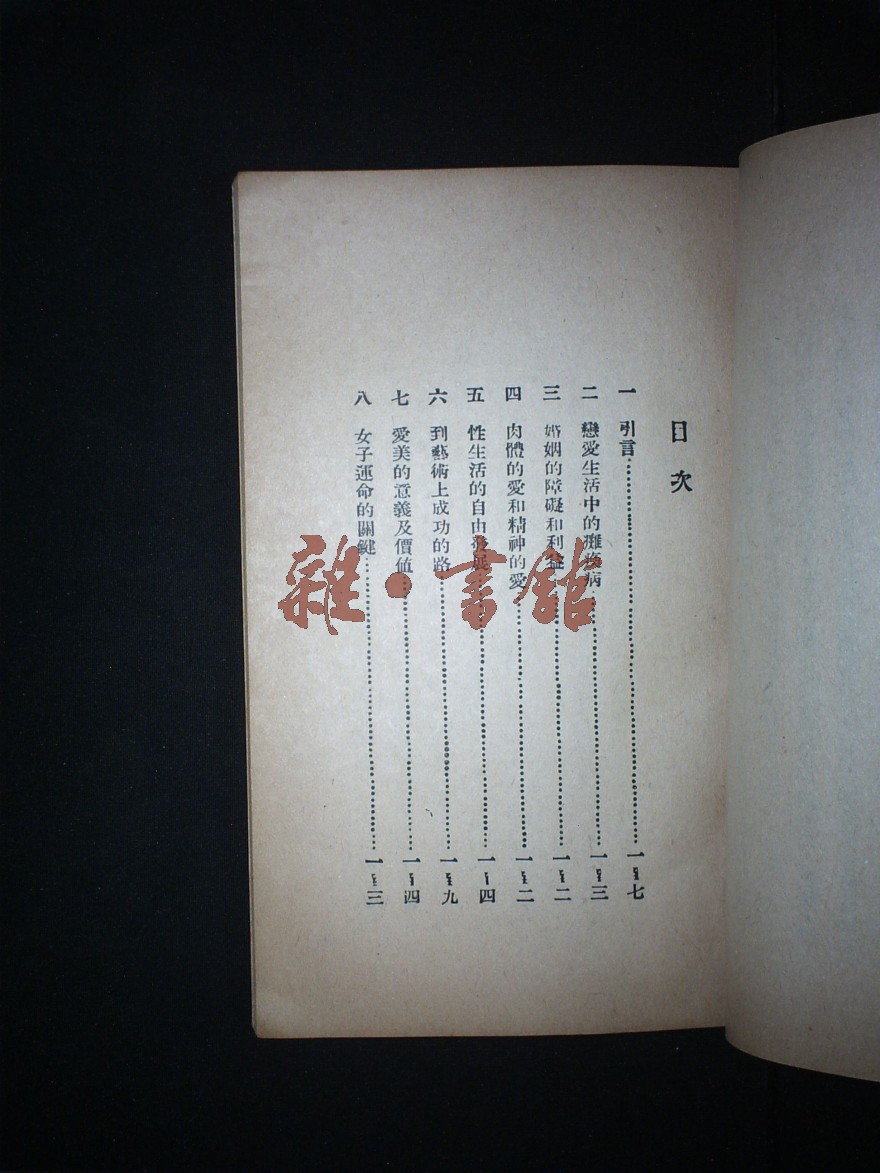 目次
一 引言……一—七
二 戀愛生活中的癱瘓病……一—三
三 婚姻的障礙和利益……一—二
四 肉體的愛和精神的愛……一—二
五 性生活的自由發展……一—四
六 到藝術上成功的路……一—九
七 愛美的意義及價値……一—四
八 女子運命的關鍵……一—三
雜·書館